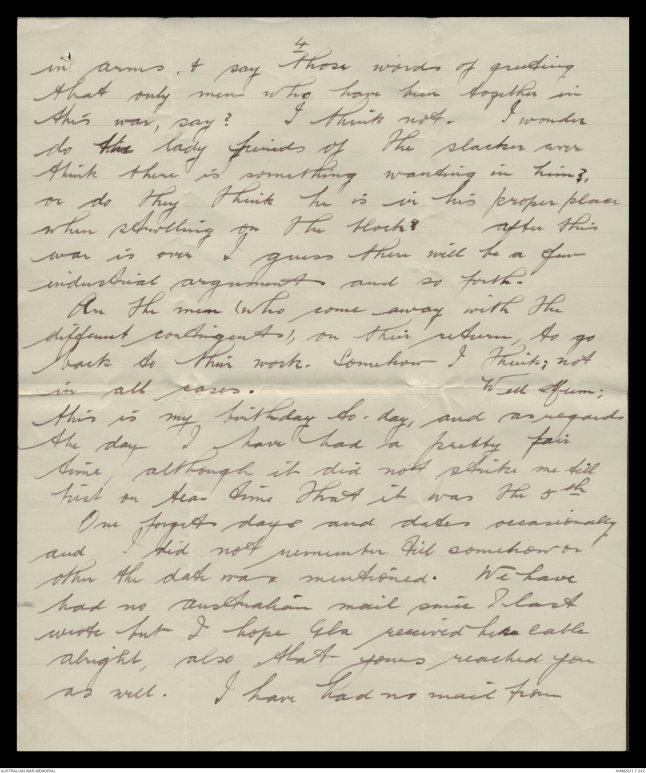 4
in arms, & say those words of greeting
that only men who have been together in
this war, say? I think not. I wonder
do the lady friends of the slacker ever
think there is something wanting in him?,
or do they think he is in his proper place
when strolling on the block? after this
war is over I guess there will be a few
industrial arguments and so forth.
Are the men (who come away with the
different contingents), on their return, to go
back to their work. Somehow I think; not
in all cases. Well Mum;
this is my birthday to-day, and as regards
the day I have had a pretty fair
time, although it did not strike me till
just on tea-time that it was the 5th
One forgets days and dates occasionally
and I did not remember till somehow or
other the date was mentioned. We have
had no australian mail since I last
wrote but I hope received her cable
alright, also that yours reached you
as well. I have had no mail from
AUSTRALIAN WAR MEMORIAL
AWM2021.7.247